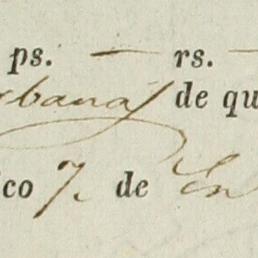 ps. — rs. —
rbanas de qu
co 7. de En